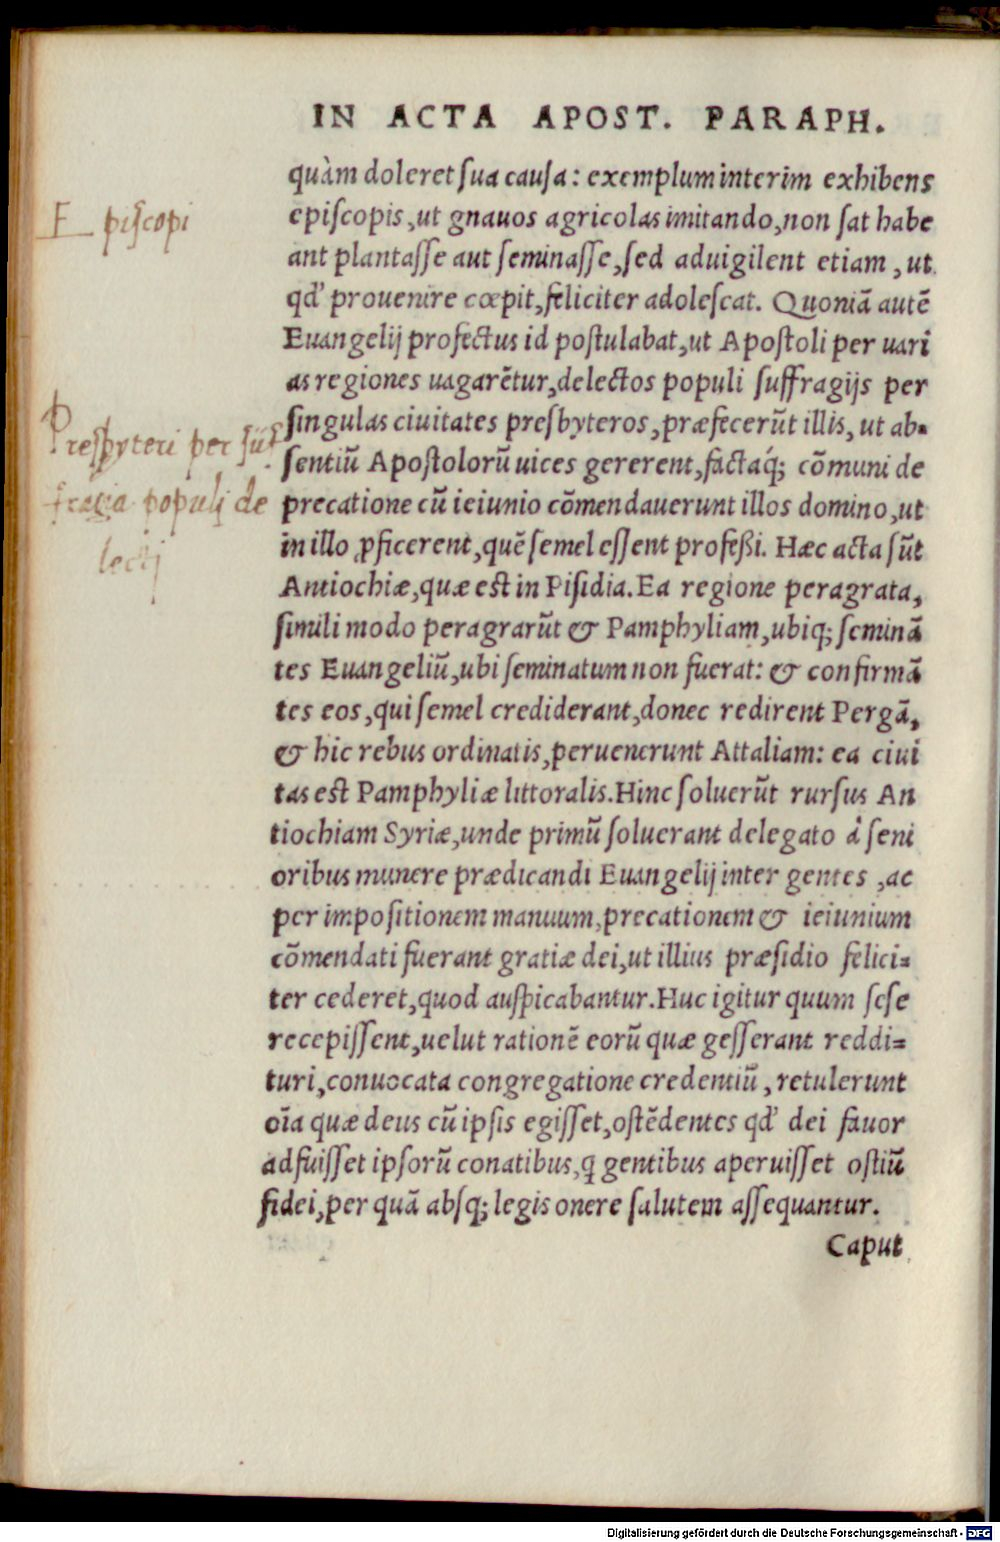 IN ACTA APOST. PARAPH.
quàm doleret ſua cauſa: exemplum interim exhibens
epiſcopis, ut gnauos agricolas imitando, non ſat habe
ant plantaſſe aut ſeminaſſe, ſed aduigilent etiam, ut
qd' prouenire cœpit, feliciter adoleſcat. Quoniã autẽ
Euangelij profectus id poſtulabat, ut Apoſtoli per uari
as regiones uagarẽtur, delectos populi ſuffragijs per
ſingulas ciuitates presbyteros, præfecerũt illis, ut ab-
ſentiũ Apoſtolorũ uices gererent, factaq́; cõmuni de
precatione cũ ieiunio cõmendauerunt illos domino, ut
in illo ꝓficerent, quẽ ſemel eſſent profeßi. Hæc acta sũt
Antiochiæ, quæ eſt in Piſidia. Ea regione peragrata,
ſimili modo peragrarũt & Pamphyliam, ubiq; ſeminã
tes Euangeliũ, ubi ſeminatum non fuerat: & confirmã
tes eos, qui ſemel crediderant, donec redirent Pergã,
& hic rebus ordinatis, peruenerunt Attaliam: ea ciui
tas eſt Pamphyliæ littoralis. Hinc ſoluerũt rurſus An
tiochiam Syriæ, unde primũ ſoluerant delegato à ſeni
oribus munere prædicandi Euangelij inter gentes, ac
per impoſitionem manuum, precationem & ieiunium
cõmendati fuerant gratiæ dei, ut illius præſidio felici-
ter cederet, quod auſpicabantur. Huc igitur quum ſeſe
recepiſſent, uelut rationẽ eorũ quæ geſſerant reddi-
turi, conuocata congregatione credentiũ, retulerunt
oĩa quæ deus cũ ipſis egiſſet, oſtẽdentes qd' dei fauor
adfuiſſet ipſorũ conatibus, q̃ gentibus aperuiſſet oſtiũ
fidei, per quã abſq; legis onere ſalutem aſſequantur.
Caput
Epiſcopi
Presbyteri per ſuf
fragia populi de
lecti
Digitalisierung gefördert durch die Deutsche Forschungsgemeinschaft - DFG